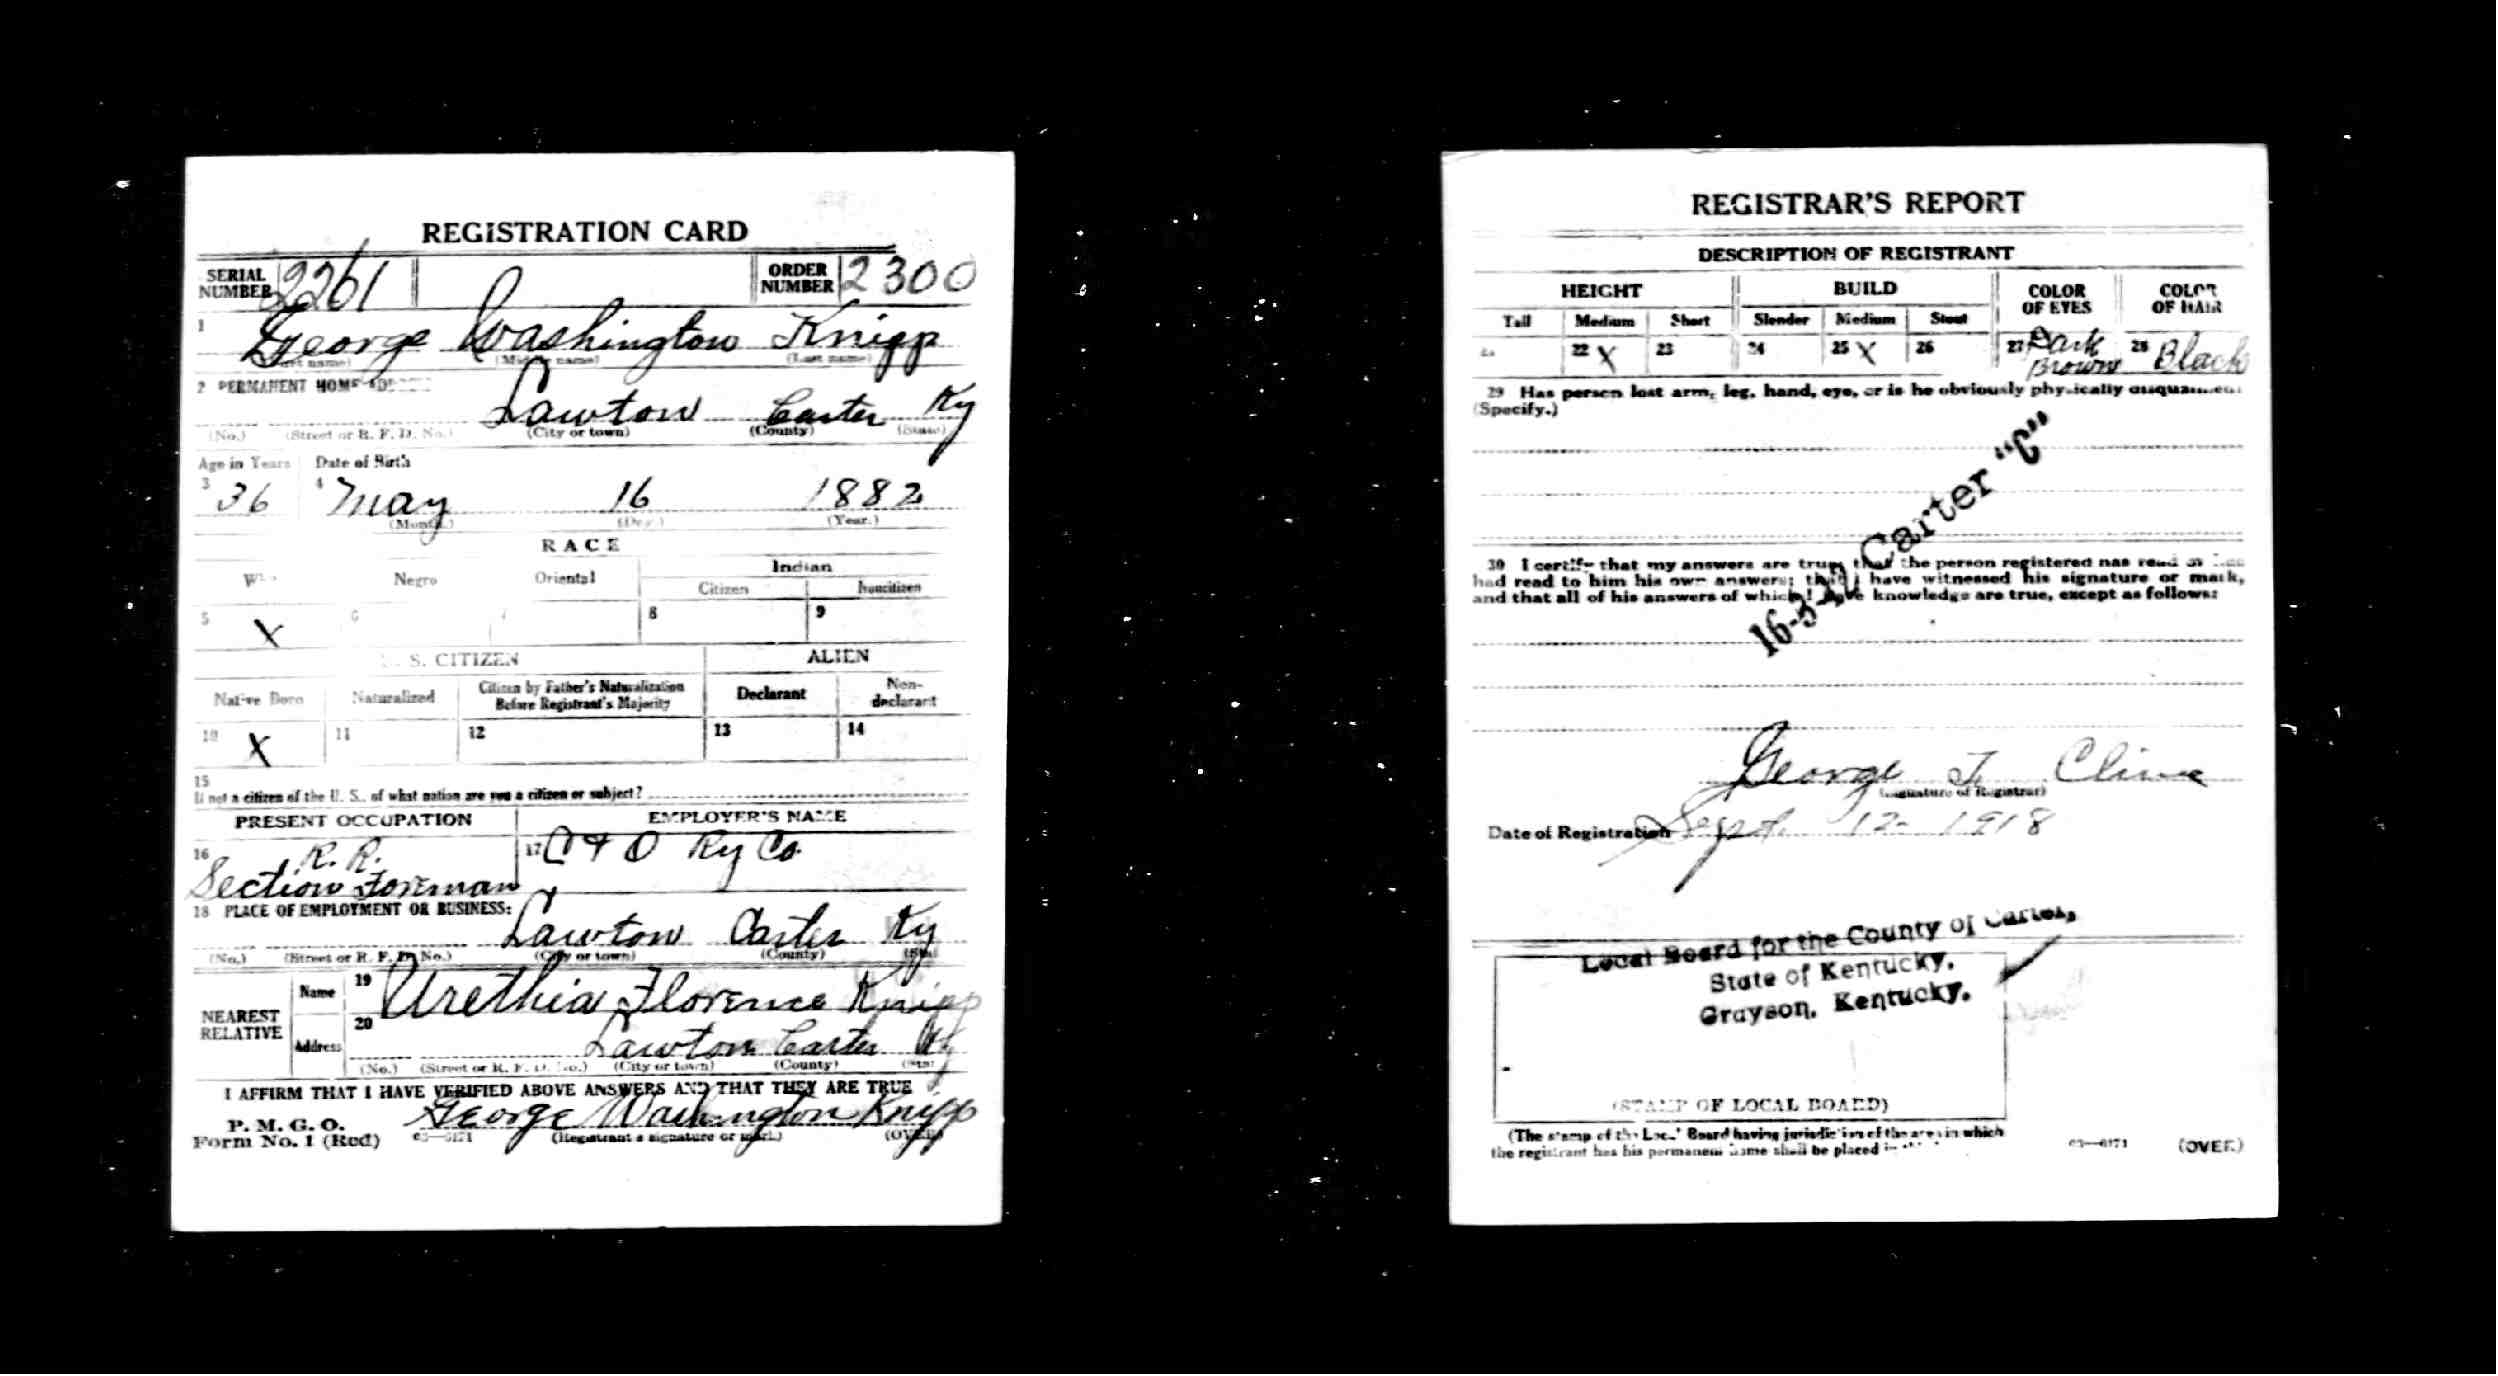 REGISTRATION CARD
SERIAL NUMBER 2261 ORDER NUMBER 2300
1 George Washington Knipp
(First name) (Middle name) (Last name)
2 PERMANENT HOME ADDRESS
Lawton Carter Ky
(No.) (Street or R. F. D. No.) (City or town) (County) (State)
Age in Years Date of Birth
3 36 4 May 16 1882
(Month.) (Day.) (Year.)
RACE
White Negro Oriental Indian
Citizen Noncitizen
5 X 6 7 8 9
U. S. CITIZEN ALIEN
Native Born Naturalized Citizen by Father's Naturalization Before Registrant's Majority Declarant Non-declarant
10 X 11 12 13 14
15
If not a citizen of the U. S., of what nation are you a citizen or subject?
PRESENT OCCUPATION EMPLOYER'S NAME
16 R. R. Section Foreman 17 C & O Ry Co.
18 PLACE OF EMPLOYMENT OR BUSINESS:
Lawton Carter Ky
(No.) (Street or R. F. D. No.) (City or town) (County) (State)
NEAREST RELATIVE Name 19 Urethia Florence Knipp
Address 20 Lawton Carter Ky
(No.) (Street or R. F. D. No.) (City or town) (County) (State)
I AFFIRM THAT I HAVE VERIFIED ABOVE ANSWERS AND THAT THEY ARE TRUE
P. M. G. O.
Form No. 1 (Red) 03—6171 George Washington Knipp
(Registrant's signature or mark.) (OVER)
REGISTRAR'S REPORT
DESCRIPTION OF REGISTRANT
HEIGHT BUILD COLOR OF EYES COLOR OF HAIR
Tall Medium Short Slender Medium Stout
21 22 X 23 24 25 X 26 27 Dark Brown 28 Black
29 Has person lost arm, leg, hand, eye, or is he obviously physically disqualified?
(Specify.)
16-3-10 Carter "C"
30 I certify that my answers are true; that the person registered has read or has
had read to him his own answers; that I have witnessed his signature or mark,
and that all of his answers of which I have knowledge are true, except as follows:
George T. Cline
(Signature of Registrar)
Date of Registration Sept. 12- 1918
Local Board for the County of Carter,
State of Kentucky,
Grayson, Kentucky.
(STAMP OF LOCAL BOARD)
(The stamp of the Local Board having jurisdiction of the area in which
the registrant has his permanent home shall be placed in this
03—6171 (OVER)